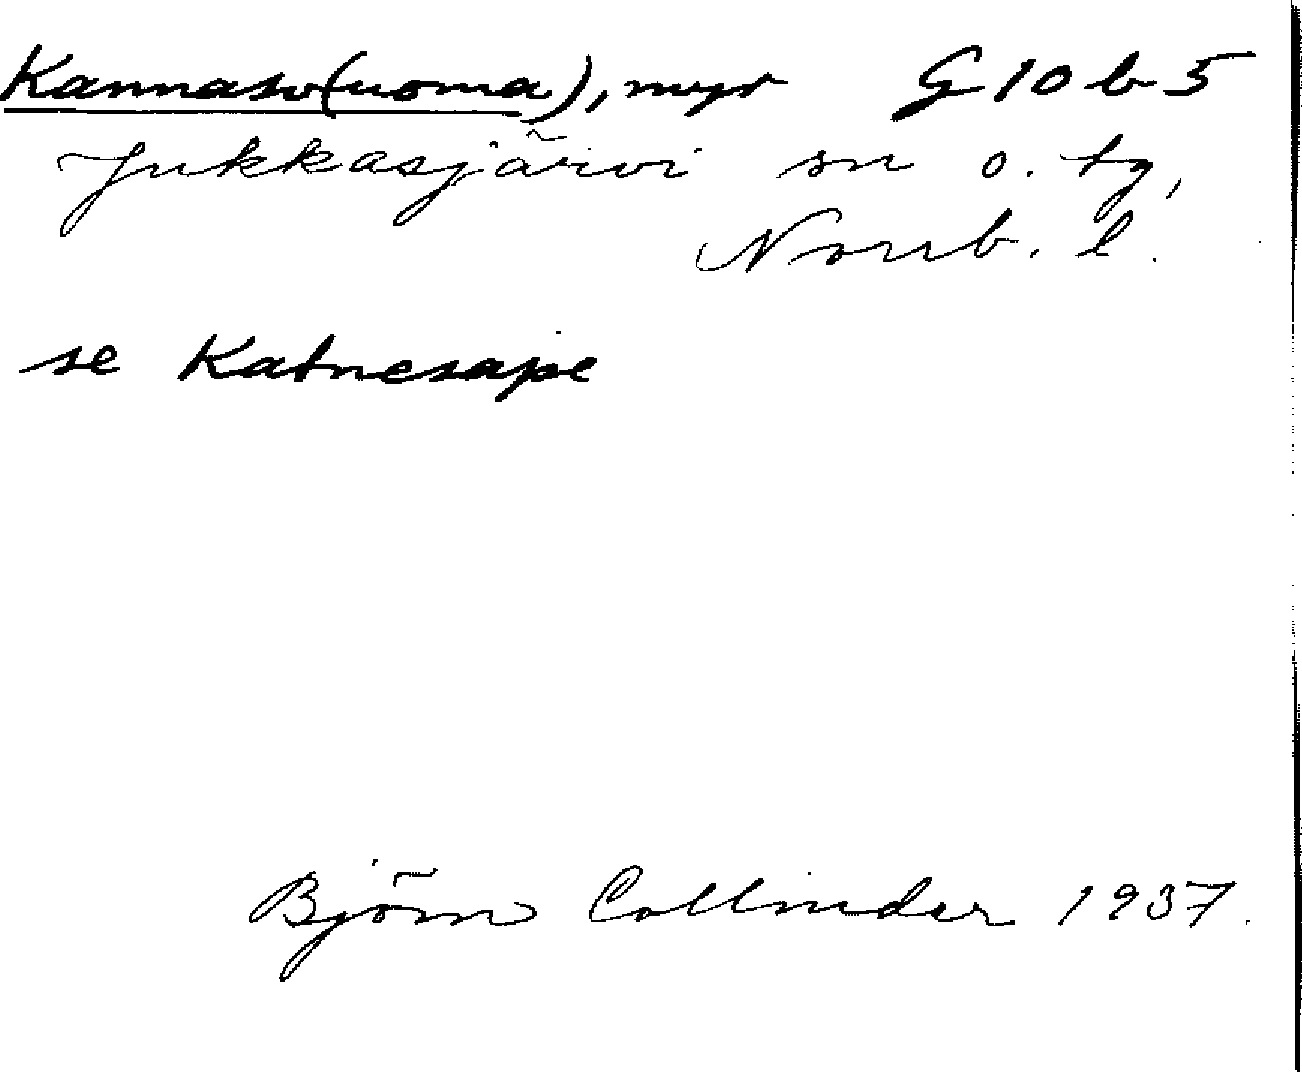 Kannasv(uoma), myr G10b5
Jukkasjärvi sn o. tg,
Norrb. l.
se Katnesape
Björn Collinder 1937.